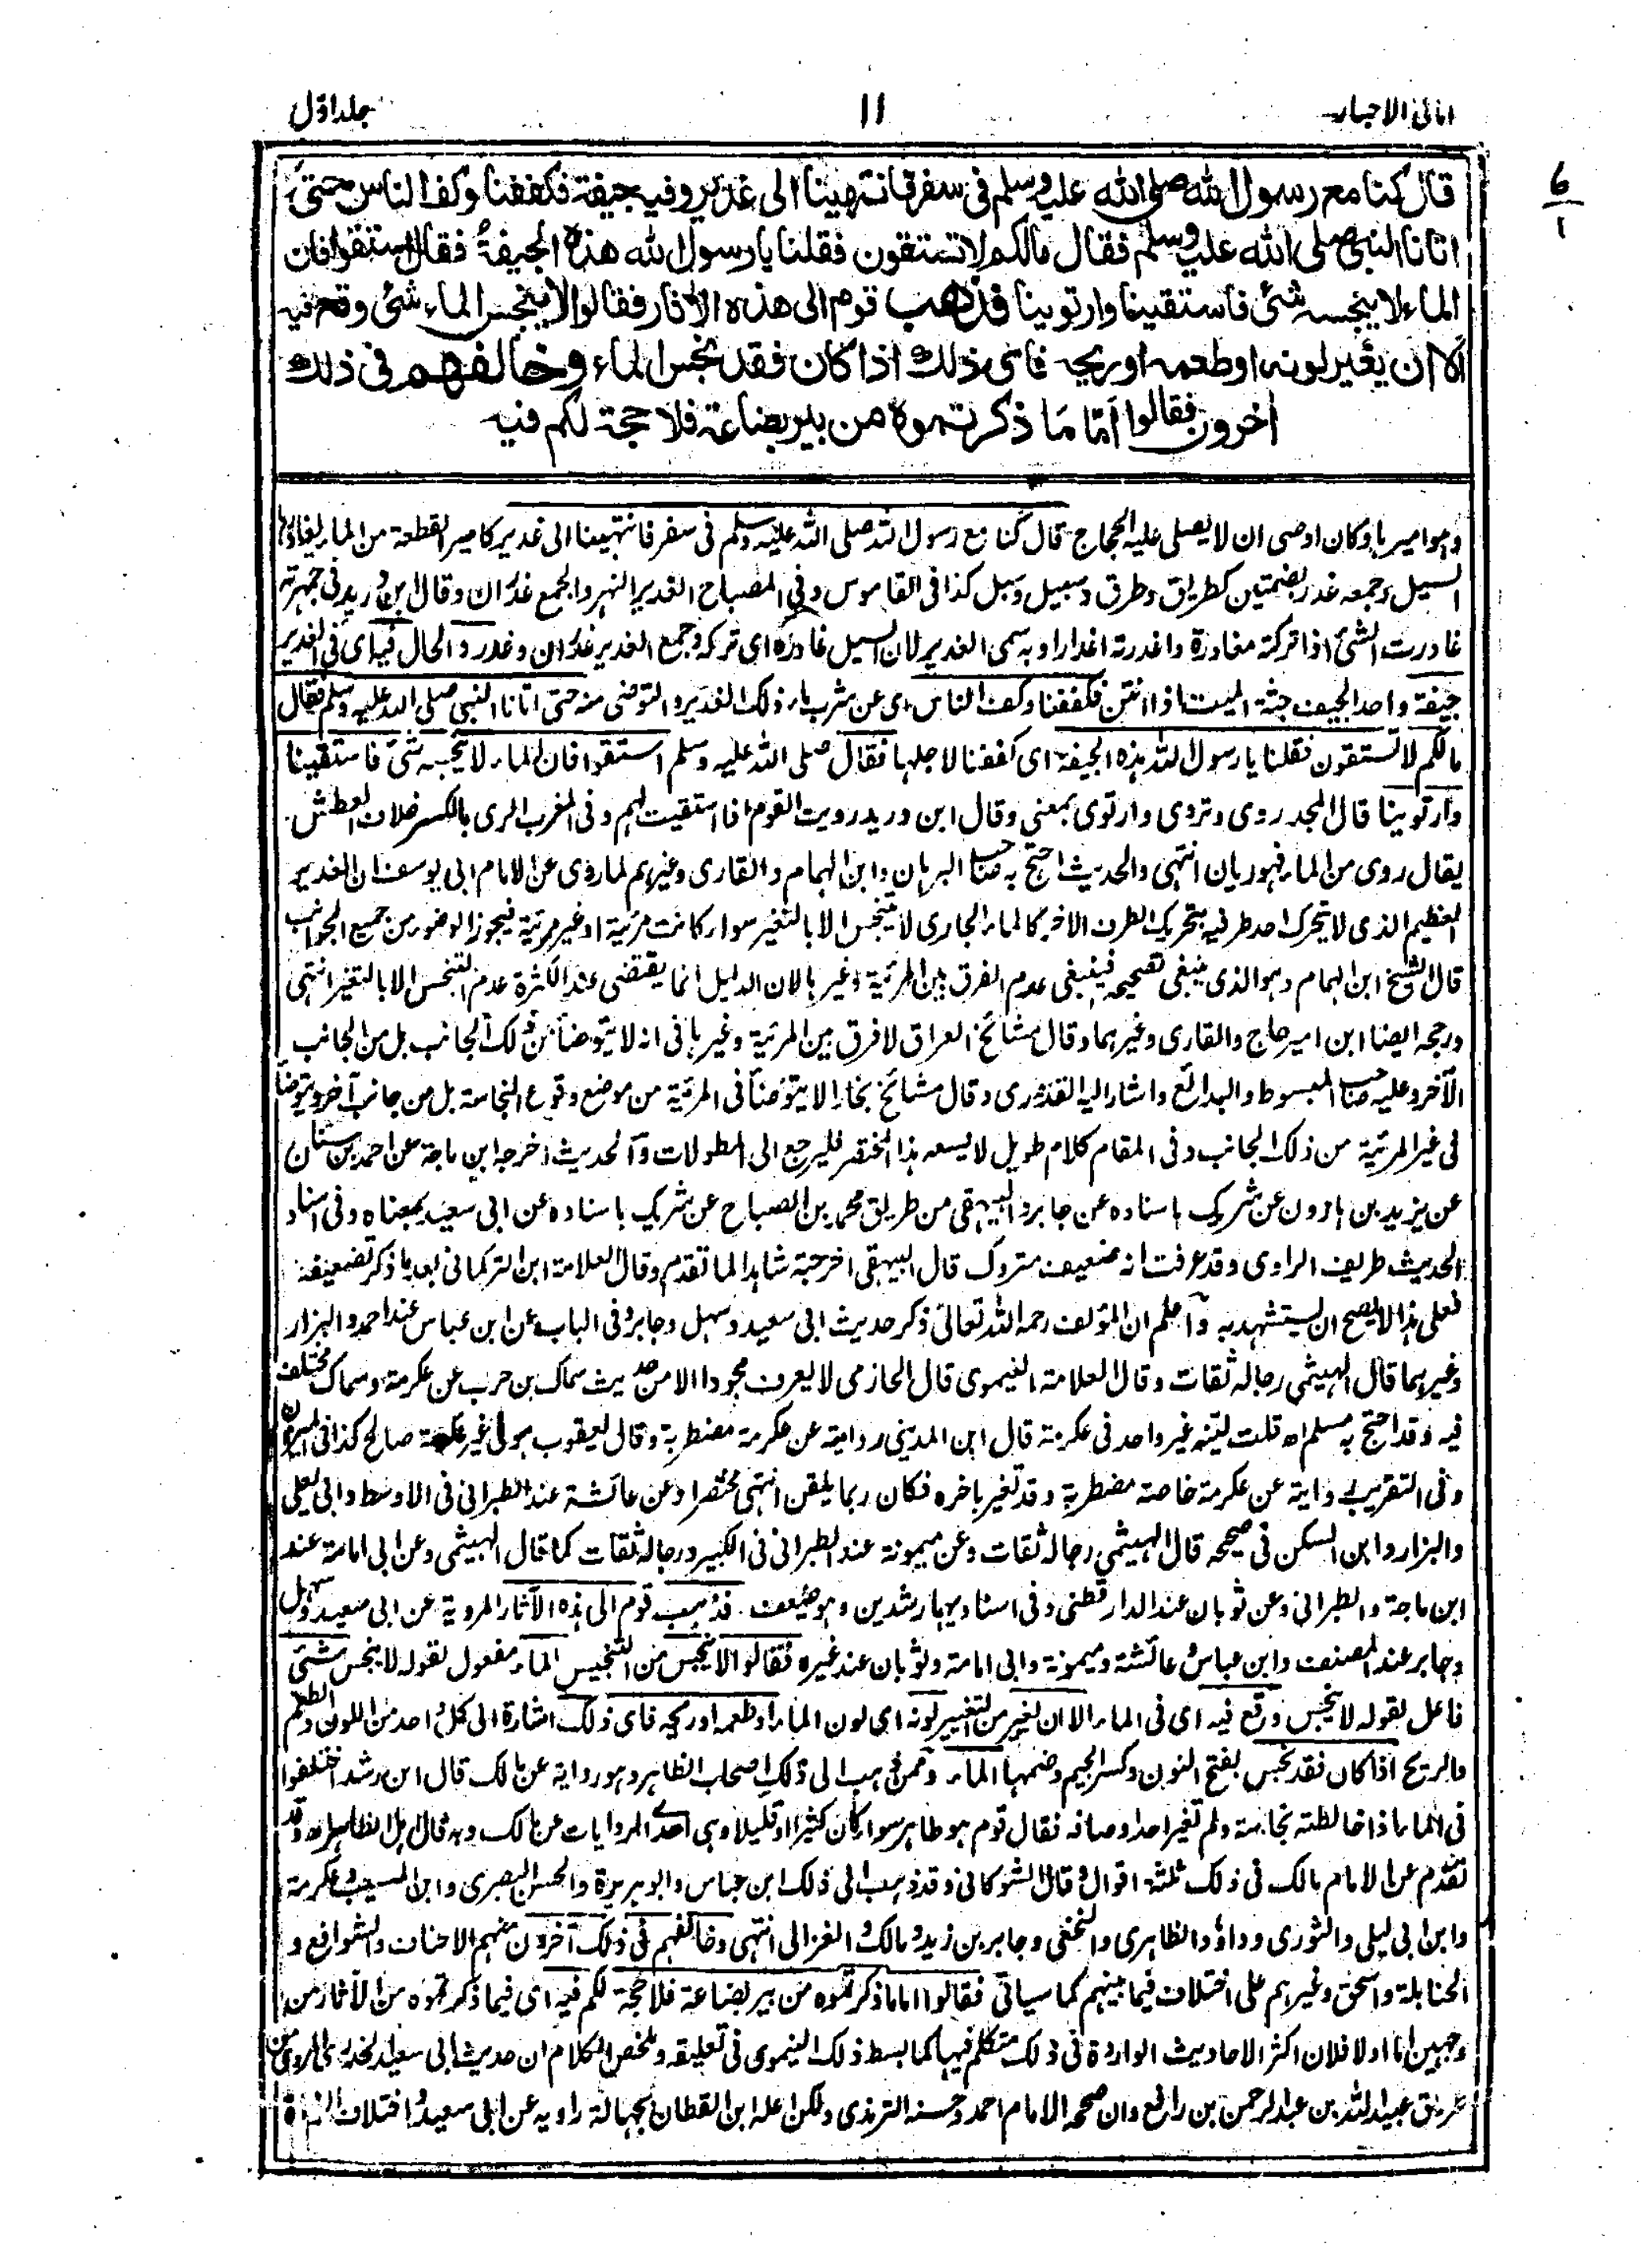 امانی الاحبار
١١
جلد اوّل
٦
١
قال كنا مع رسول الله صلى الله عليه وسلم فى سفر فانتهينا الى غدير وفيه جيفة فكففنا وكف الناس حتى
اتانا النبى صلى الله عليه وسلم فقال مالكم لا تستقون فقلنا يا رسول الله هذه الجيفة فقال استقوا فان
الماء لا ينجسه شئ فاستقينا وارتوينا فذهب قوم الى هذه الاثار فقالوا لا ينجس الماء شئ وقع فيه
الا ان يغير لونه او طعمه او ريحه فاى ذلك اذا كان فقد نجس الماء وخالفهم فى ذلك
اخرون فقالوا امّا مَا ذكرتموه من بير بضاعة فلا حجة لكم فيه
وہو امیر ہا وكان اوصى ان لا يصلى عليه الحجاج قال كنا مع رسول الله صلى الله عليه وسلم فى سفر فانتهينا الى غدير كامير القطعة من الماء يغادرها
السيل وجمعه غدر بضمتين كطريق وطرق وسبيل وسبل كذا فى القاموس وفى المصباح الغدير النهر والجمع غدران وقال ابن دريد فى جمهرته
غادرت الشئ اذا تركته مغادرة واغدرته اغدارا وبه سمى الغدير لان السيل غادره اى تركه وجمع الغدير غدران وغدر والحال فيه اى فى الغدير
جيفة واحد الجيف جثة الميت اذا انتن فكففنا وكف الناس اى عن شرب ماء ذلك الغدير والتوضى منه حتى اتانا النبى صلى الله عليه وسلم فقال
مالكم لا تستقون فقلنا يا رسول الله هذه الجيفة اى كففنا لاجلها فقال صلى الله عليه وسلم استقوا فان الماء لا ينجسه شئ فاستقينا
وارتوينا قال المجد روى وتروى وارتوى بمعنى وقال ابن دريد رويت القوم اذا استقيت لهم وفى المغرب الرى بالكسر خلاف العطش
يقال روى من الماء فهو ريان انتهى والحديث احتج به صاحب البرهان وابن الهمام والقارى وغيرهم لما روى عن الامام ابى يوسف ان الغدير
العظيم الذى لا يتحرك احد طرفيه بتحريك الطرف الاخر كالماء الجارى لا يتنجس الا بالتغير سواء كانت مرئية او غير مرئية فيجوز الوضوء من جميع الجوانب
قال الشيخ ابن الهمام وهو الذى ينبغى تصحيحه فينبغى عدم الفرق بين المرئية وغيرها لان الدليل انما يقتضى عند الكثرة عدم التنجس الا بالتغير انتهى
ورجحه ايضا ابن امير حاج والقارى وغيرهما وقال مشائخ العراق لا فرق بين المرئية وغيرها فى انه لا يتوضأ من ذلك الجانب بل من الجانب
الآخر وعليه صاحب المبسوط والبدائع واشار اليه القدورى وقال مشائخ بخارا لا يتوضأ فى المرئية من موضع وقوع النجاسة بل من جانب آخر ويتوضأ
فى غير المرئية من ذلك الجانب وفى المقام كلام طويل لا يسعه هذا المختصر فليرجع الى المطولات وآلحديث اخرجه ابن ماجة عن احمد بن سنان
عن يزيد بن هارون عن شريك باسناده عن جابر والبيهقى من طريق محمد بن الصباح عن شريك باسناده عن ابى سعيد بمعناه وفى اسناد
الحديث طريف الراوى وقد عرفت انه ضعيف متروك قال البيهقى اخرجته شاهدا لما تقدم وقال العلامة ابن التركمانى بعد ما ذكر تضعيفه
فعلى هذا لا يصح ان يستشهد به وآعلم ان المؤلف رحمه الله تعالى ذكر حديث ابى سعيد وسهل وجابر وفى الباب عن ابن عباس عند احمد والبزار
وغيرهما قال الهيثمى رجاله ثقات وقال العلامة النيموى قال الحازمى لا يعرف مجودا الا من حديث سماك بن حرب عن عكرمة وسماك مختلف
فيه وقد احتج به مسلم اھ قلت لينه غير واحد فى عكرمة قال ابن المدينى روايته عن عكرمة مضطربة وقال يعقوب هو فى غير عكرمة صالح كذا فى الميزان
وفى التقريب روايته عن عكرمة خاصة مضطربة وقد تغير باخره فكان ربما يلقن انتهى مختصرا وعن عائشة عند الطبرانى فى الاوسط وابى يعلى
والبزار وابن السكن فى صحيحه قال الهيثمى رجاله ثقات وعن ميمونة عند الطبرانى فى الكبير ورجاله ثقات كما قال الهيثمى وعن ابى امامة عند
ابن ماجة والطبرانى وعن ثوبان عند الدارقطنى وفى اسناديهما رشدين وهو ضعيف. فذهب قوم الى هذه الآثار المروية عن ابى سعيد وسهل
وجابر عند المصنف وابن عباس وعائشة وميمونة وابى امامة وثوبان عند غيره فقالوا لا ينجس من التنجيس الماء مفعول لقوله لا ينجس شئ
فاعل لقوله لا ينجس وقع فيه اى فى الماء الا ان يغير من التغيير لونه اى لون الماء او طعمه او ريحه فاى ذلك اشارة الى كل واحد من اللون والطعم
والريح اذا كان فقد نجس بفتح النون وكسر الجيم وضمها الماء وممن ذهب الى ذلك اصحاب الظاهر وهو رواية عن مالك قال ابن رشد اختلفوا
فى الماء اذا خالطته نجاسة ولم تغير احد اوصافه فقال قوم هو طاهر سواء كان كثيرا او قليلا وهى احدى الروايات عن مالك وبه قال اهل الظاهر اھ وقد
تقدم عن الامام مالك فى ذلك ثلثة اقوال وقال الشوكانى وقد ذهب الى ذلك ابن عباس وابو هريرة والحسن البصرى وابن المسيب وعكرمة
وابن ابى ليلى والثورى وداؤد الظاهرى والنخعى وجابر بن زيد ومالك والغزالى انتهى وخالفهم فى ذلك آخرون منهم الاحناف والشوافع و
الحنابلة واسحق وغيرهم على اختلاف فيما بينهم كما سياتى فقالوا اما ما ذكرتموه من بير بضاعة فلا حجة لكم فيه اى فيما ذكرتموه من الآثار من
وجهين اما اولا فلان اكثر الاحاديث الواردة فى ذلك متكلم فيها كما بسط ذلك النيموى فى تعليقه وملخص الكلام ان حديث ابى سعيد الخدرى المروى من
طريق عبيد الله بن عبد الرحمن بن رافع وان صححه الامام احمد وحسنه الترمذى ولكن اعله ابن القطان بجهالة راويه عن ابى سعيد واختلاف